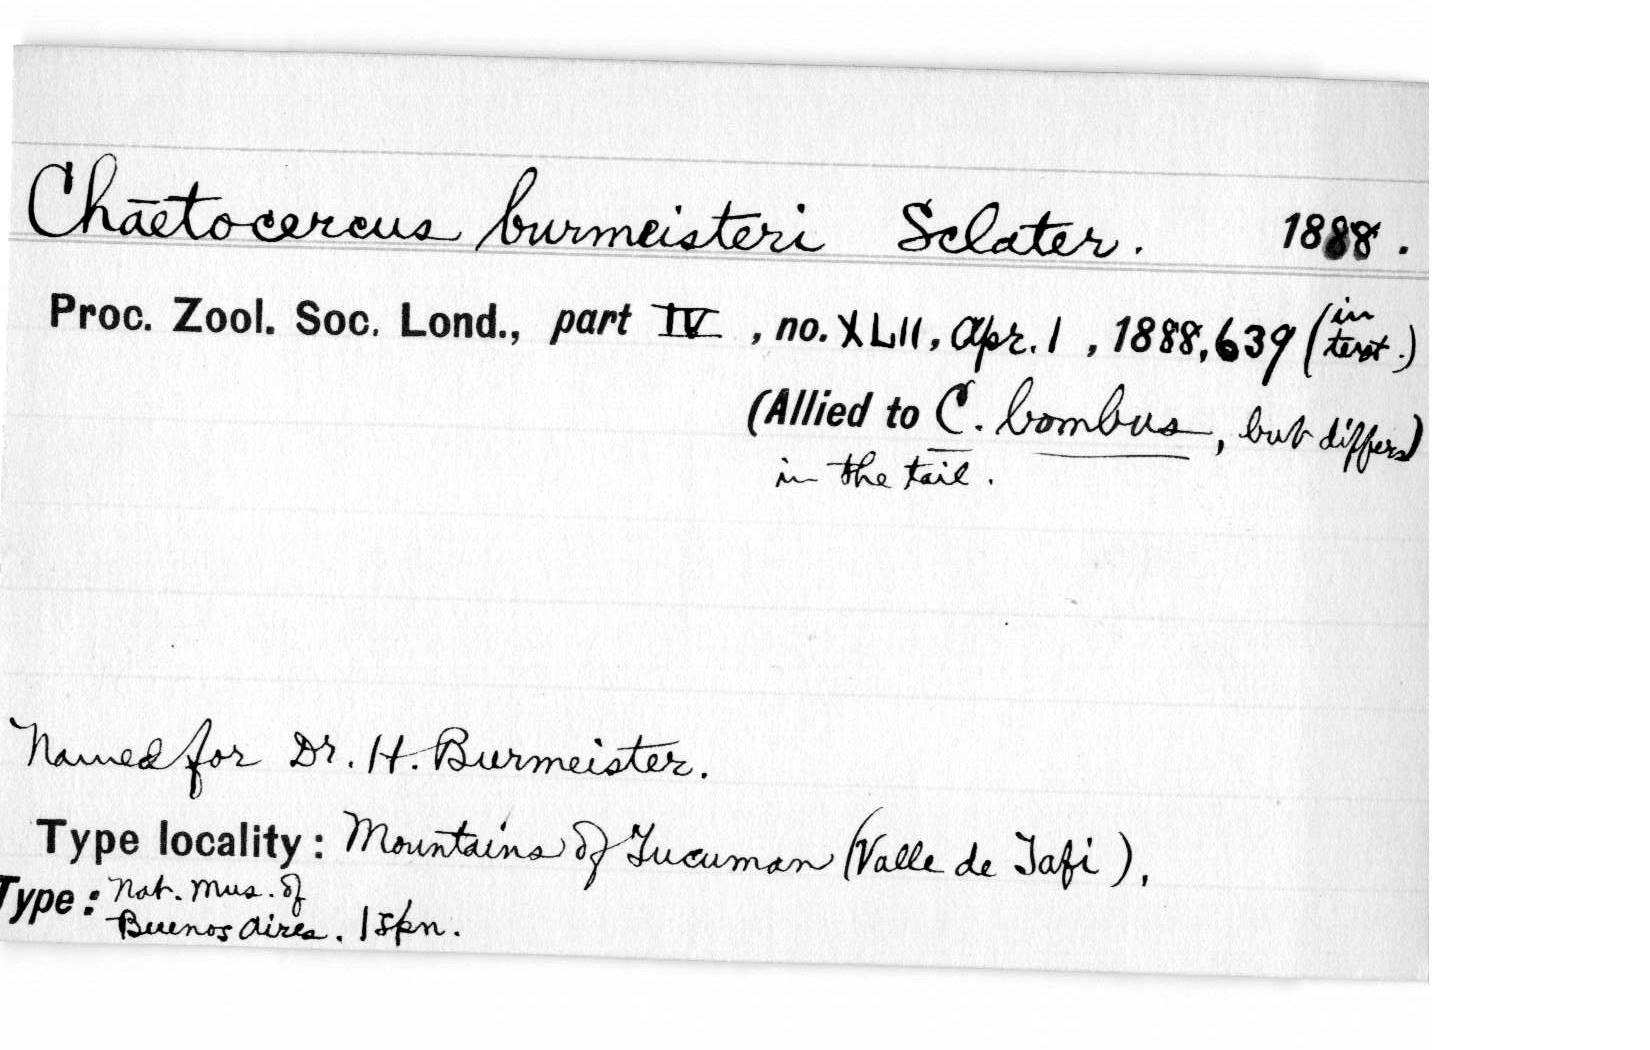 Chaetocercus burmeisteri Sclater. 1888.
Proc. Zool. Soc. Lond., part IV, no. XLII, Apr. 1, 1888, 639 (in text.)
(Allied to C. bombus, but differs)
in the tail.
Named for Dr. H. Burmeister.
Type locality: Mountains of Tucuman (Valle de Tafi),
Type: Nat. Mus. of
Buenos Aires. 1 spn.